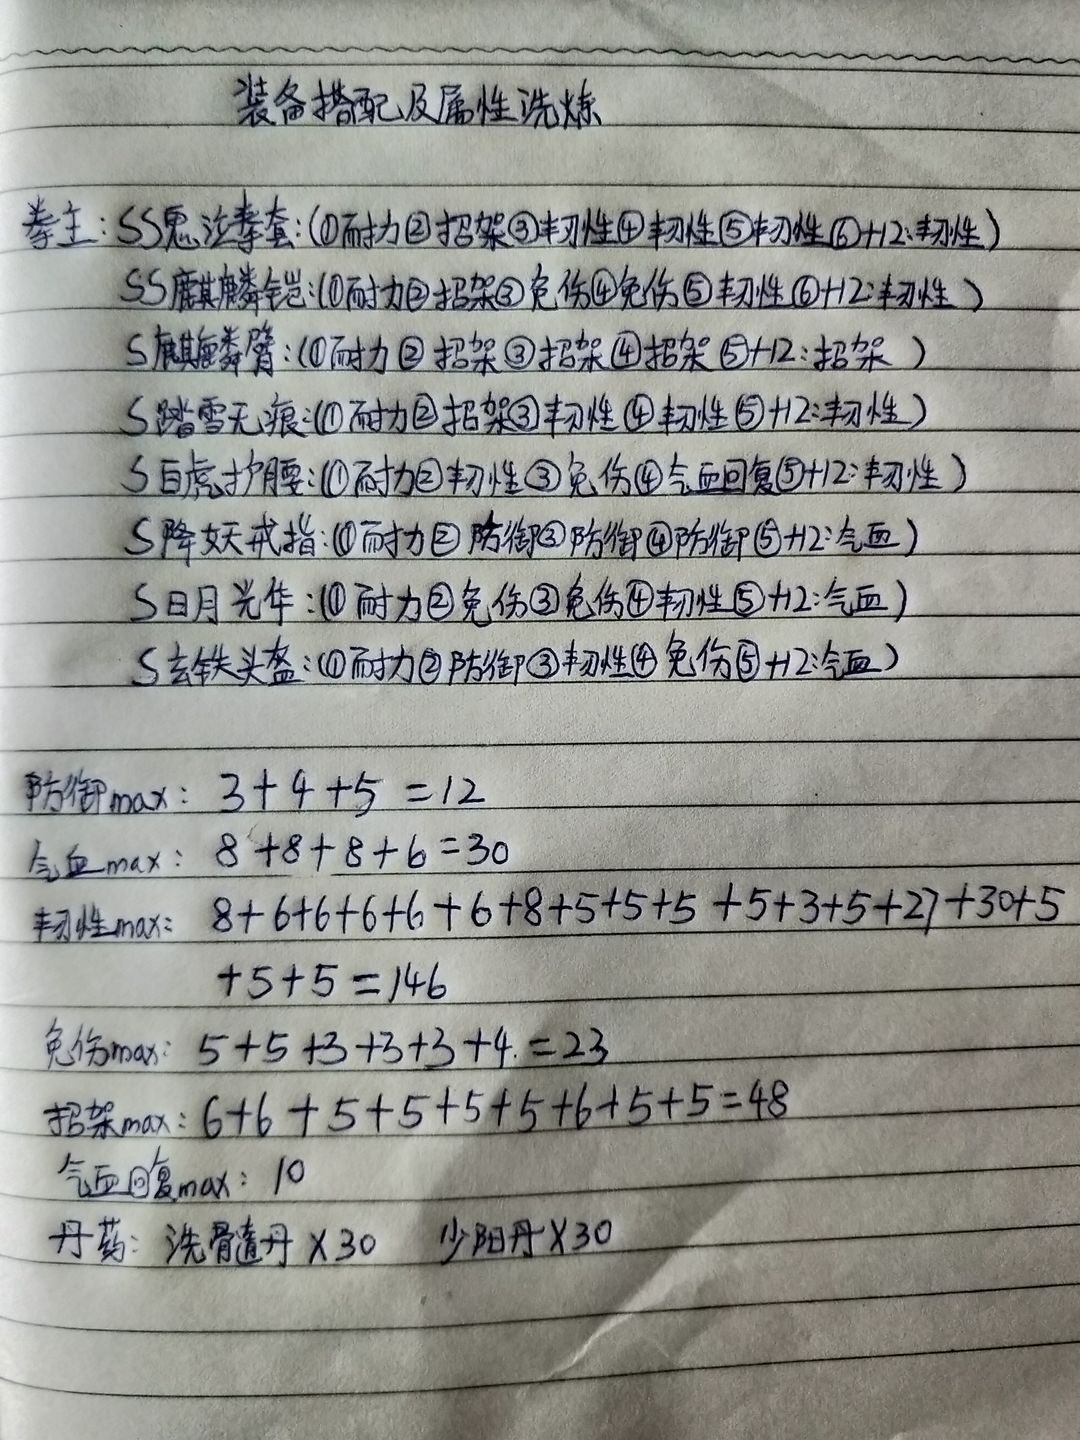 装备搭配及属性洗炼
拳主：SS鬼泣拳套：(①耐力②招架③韧性④韧性⑤韧性⑥+12:韧性)
SS麒麟铠：(①耐力②招架③免伤④免伤⑤韧性⑥+12:韧性)
S麒麟臂：(①耐力②招架③招架④招架⑤+12：招架)
S踏雪无痕：(①耐力②招架③韧性④韧性⑤+12:韧性)
S白虎护腰：(①耐力②韧性③免伤④气血回复⑤+12:韧性)
S降妖戒指：(①耐力②防御③防御④防御⑤+12:气血)
S日月光华：(①耐力②免伤③免伤④韧性⑤+12:气血)
S玄铁头盔：(①耐力②防御③韧性④免伤⑤+12:气血)
防御max：3+4+5=12
气血max：8+8+8+6=30
韧性max：8+6+6+6+6+6+8+5+5+5+5+3+5+27+30+5
+5+5=146
免伤max：5+5+3+3+3+4.=23
招架max：6+6+5+5+5+5+6+5+5=48
气血回复max：10
丹药：洗骨髓丹X30 少阳丹X30